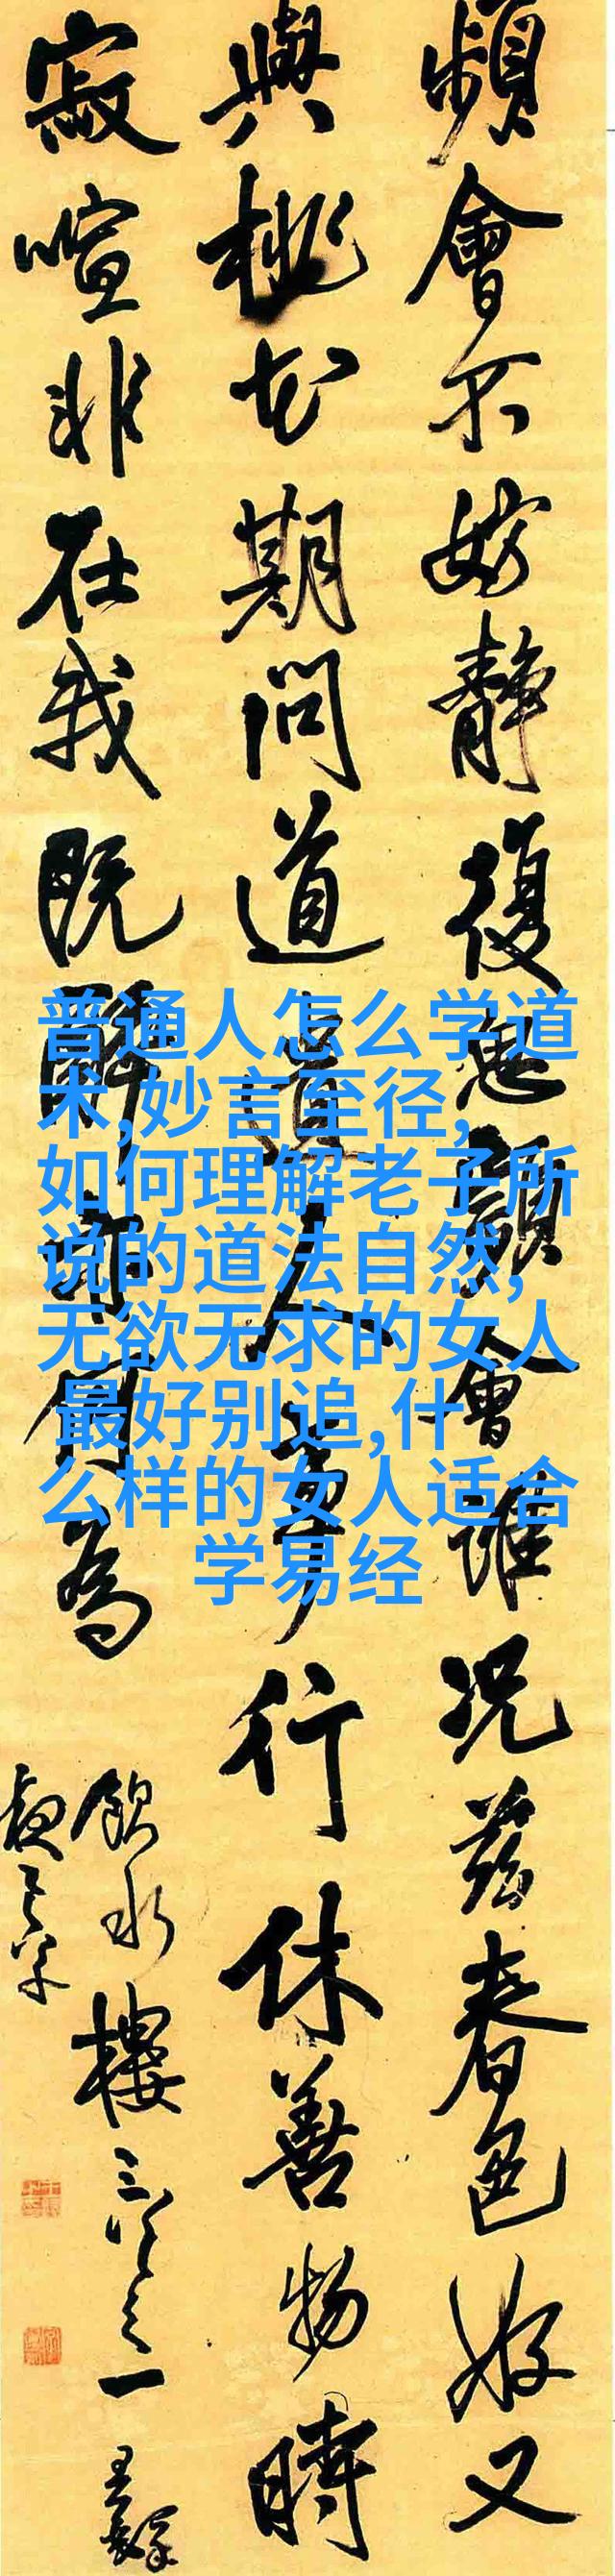 頻會不妨靜復思顧會誰況茲春色好又
與桃花期問道遺人事行休善物時
寂喧非在我既何為
飲水樓三首之一
王鐸
普通人怎么学道
术,妙言至径,
如何理解老子所
说的道法自然,
无欲无求的女人
最好别追,什
么样的女人适合
学易经